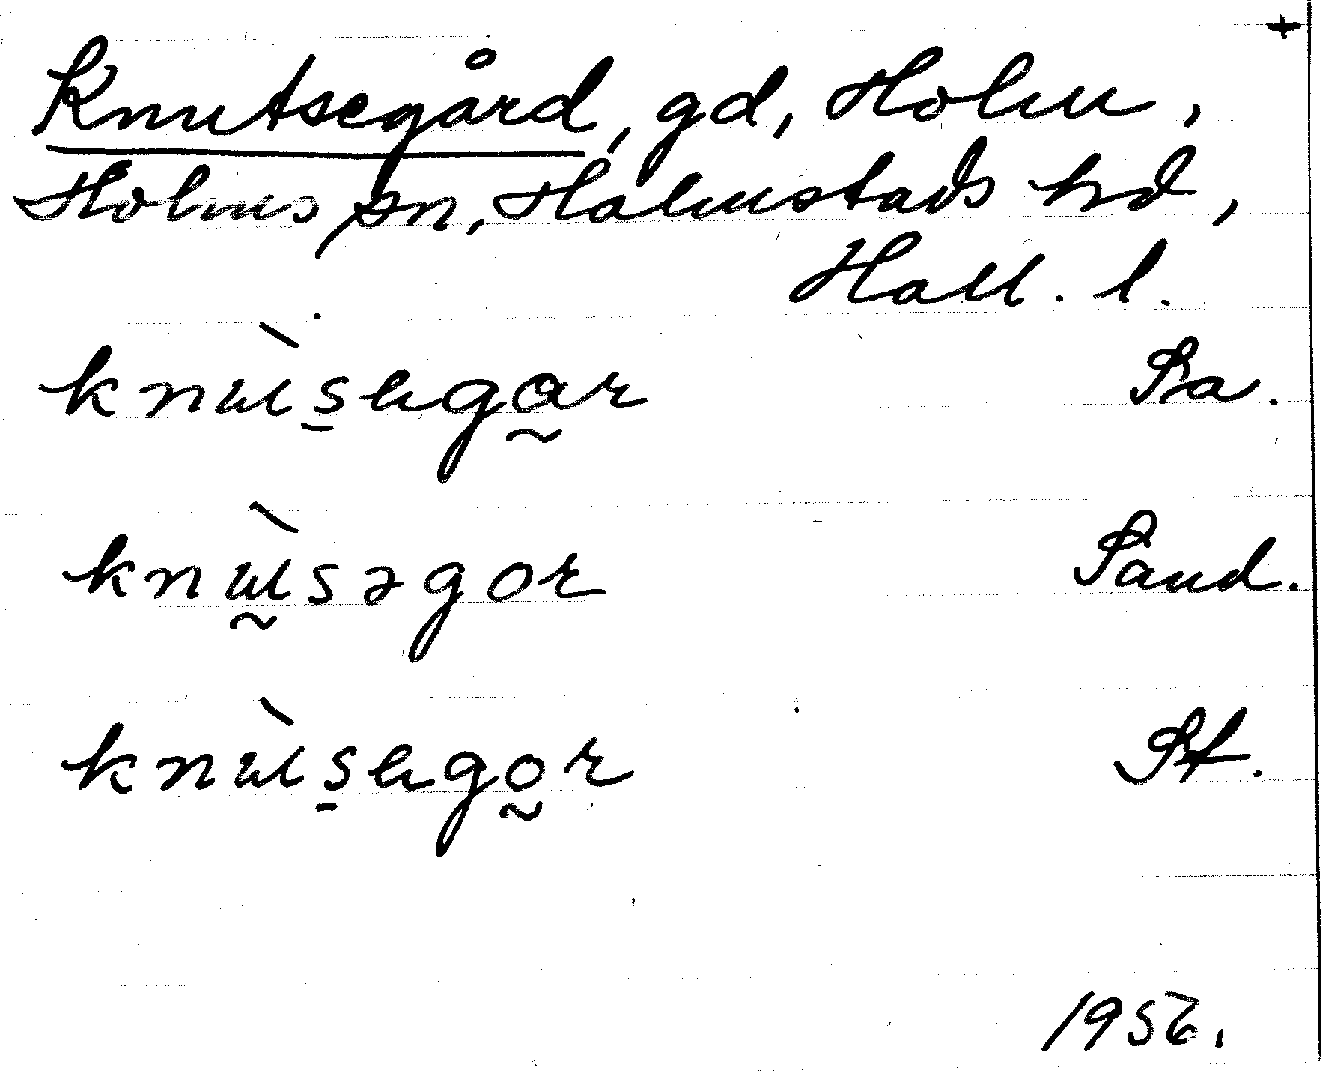 +
Knutsegård, gd, Holm,
Holms sn, Halmstads hd,
Hall. l.
knɯ̀s̱ɐgɑ̰r Sa.
knɯ̰̀səgor Sand.
knɯ̀s̱ɐgo̰r St.
1956.